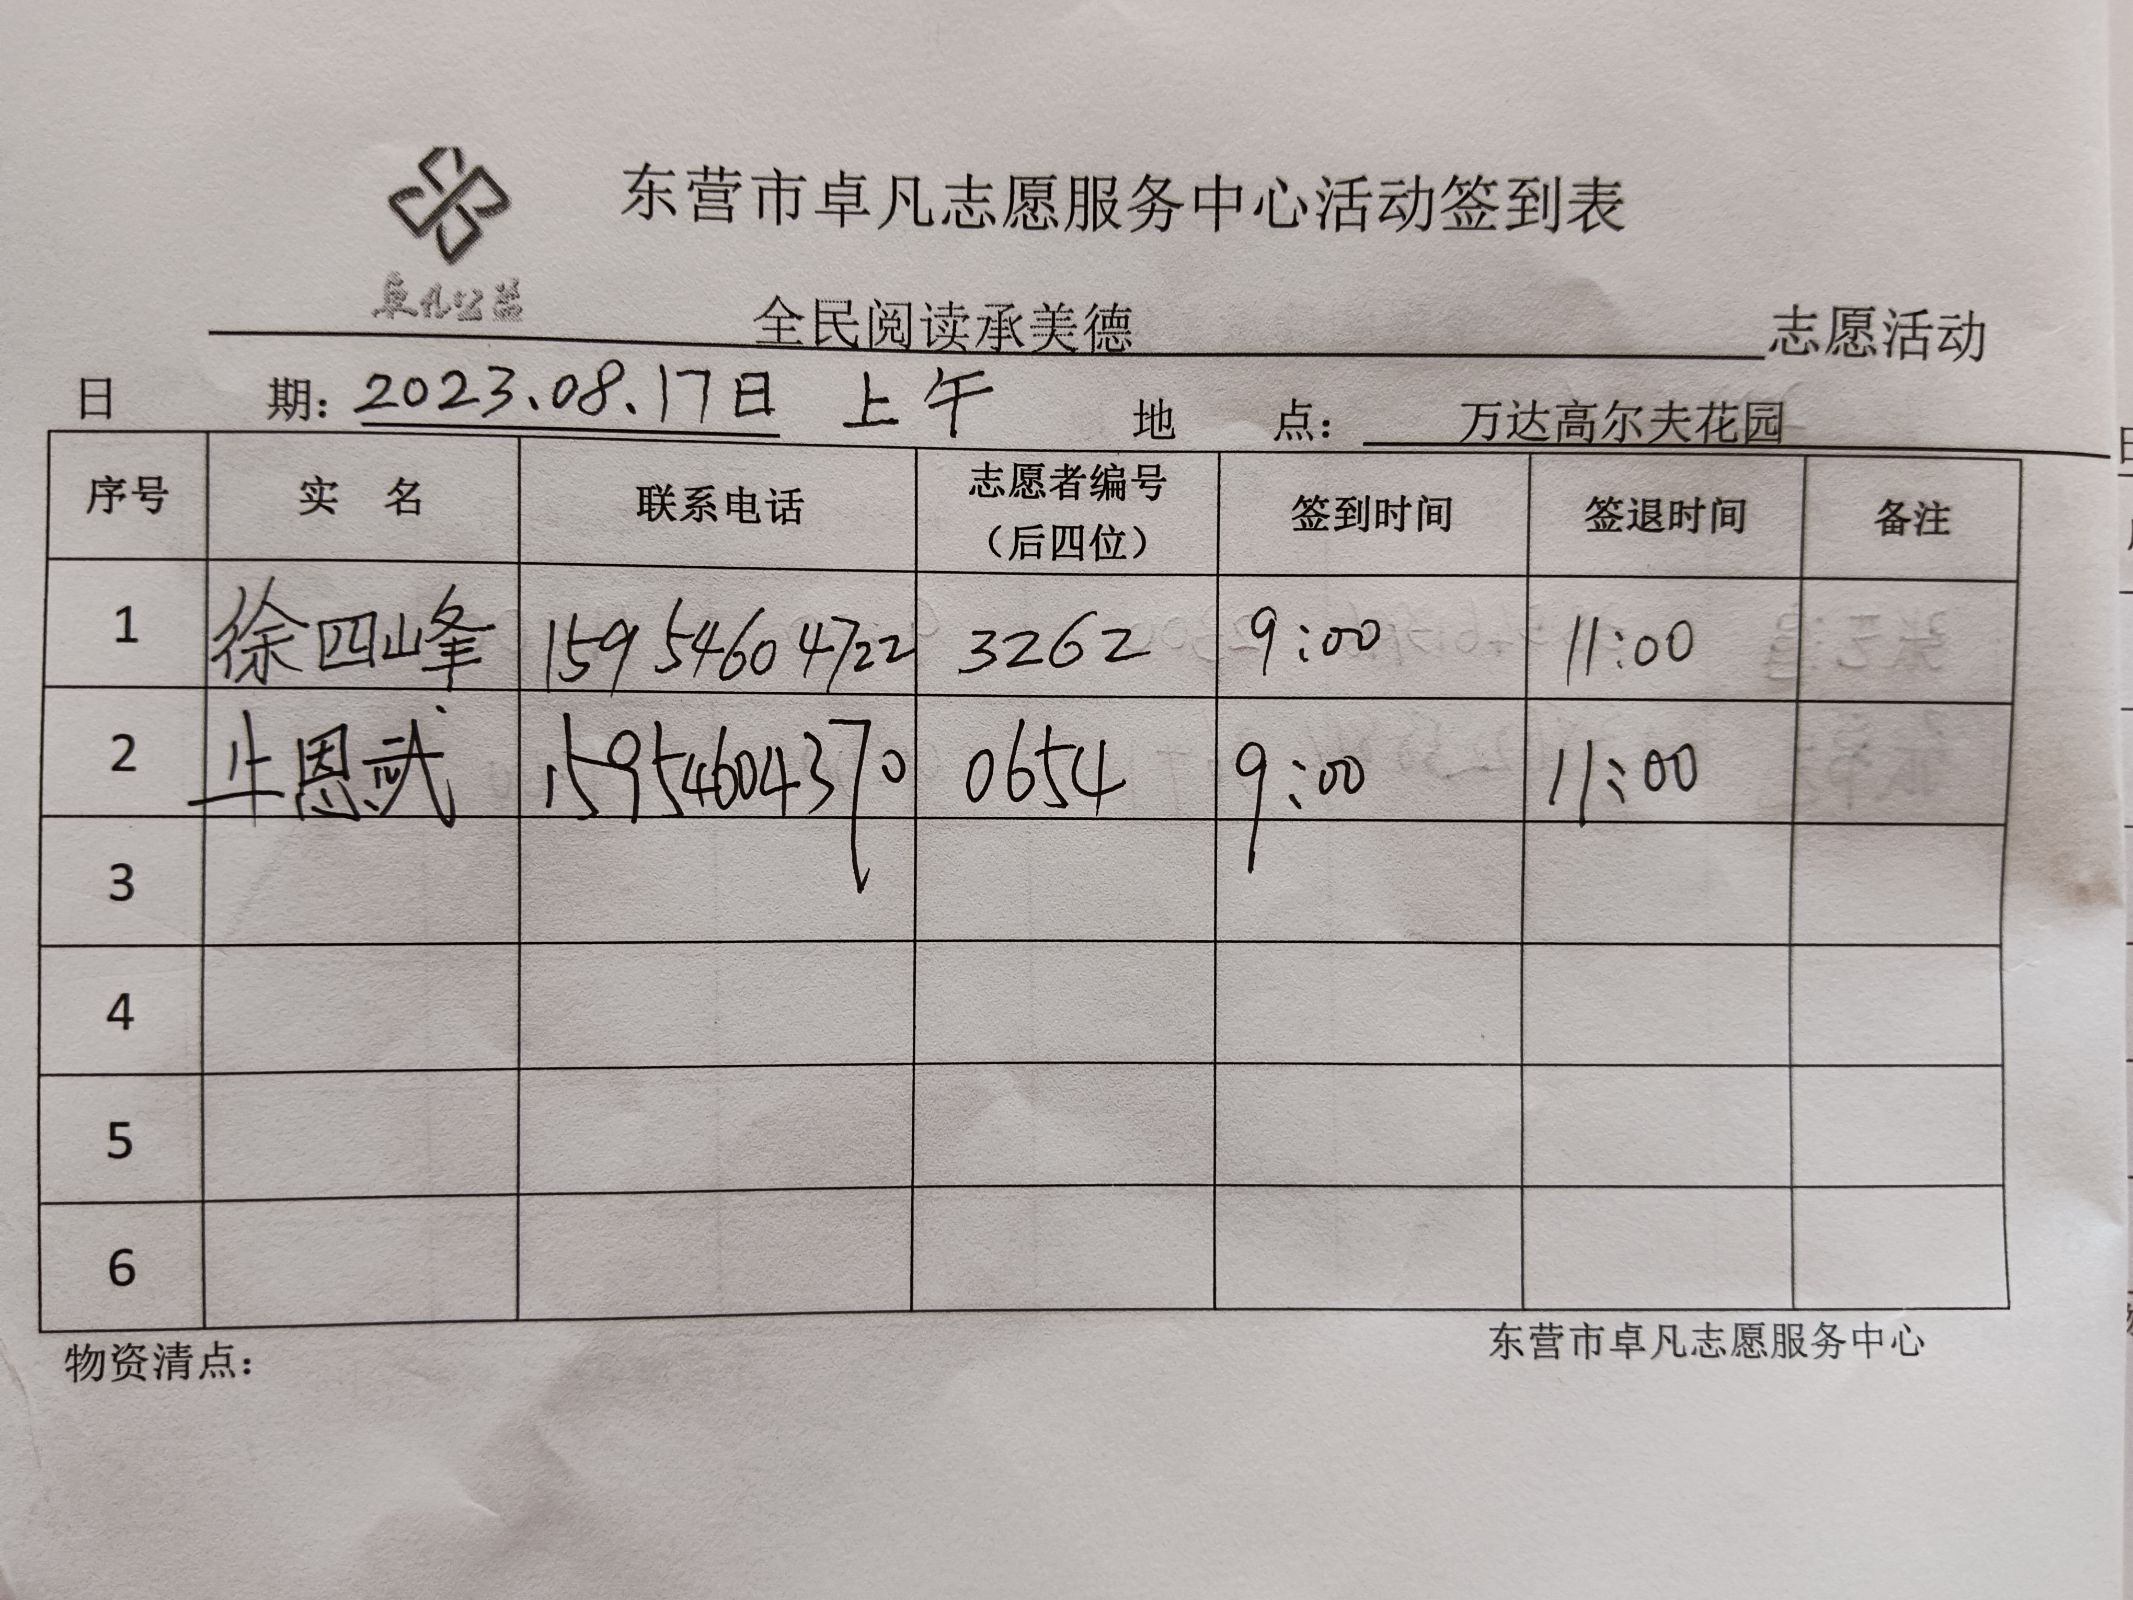 东营市卓凡志愿服务中心活动签到表
卓凡公益
全民阅读承美德 志愿活动
日 期：2023.08.17日 上午 地 点： 万达高尔夫花园
序号 实 名 联系电话 志愿者编号（后四位） 签到时间 签退时间 备注
1 徐四峰 15954604722 3262 9:00 11:00
2 牛恩武 15954604370 0654 9:00 11:00
3
4
5
6
物资清点： 东营市卓凡志愿服务中心